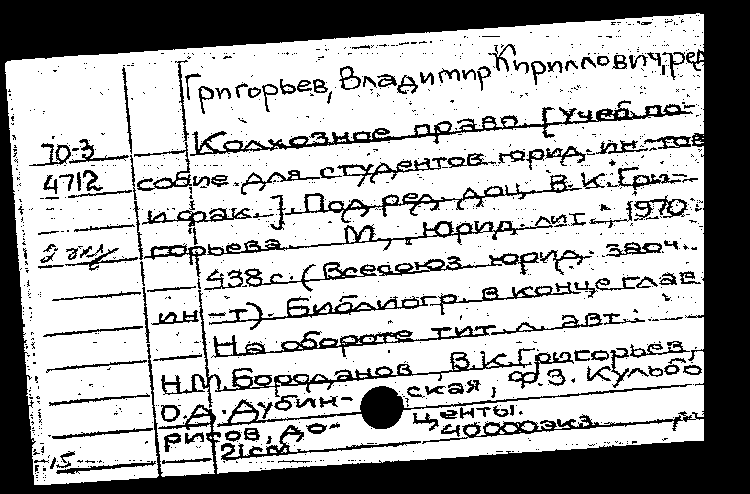 Григорьев, Владимир Кириллович, ред
70-3
4712
2 экз
Колхозное право. [Учеб. по-
собие для студентов юрид. ин-тов
и фак.]. Под ред. доц. В.К.Гри-
горьева. М., "Юрид. лит.", 1970.
438 с. (Всесоюз. юрид. заоч.
ин-т). Библиогр. в конце глав.
На обороте тит. л. авт.:
Н.М.Бороданов, В.К.Григорьев,
О.Д.Дубин- ская, Ф.З. Кульбо
рисов, до- центы.
21см. 40000экз.
15